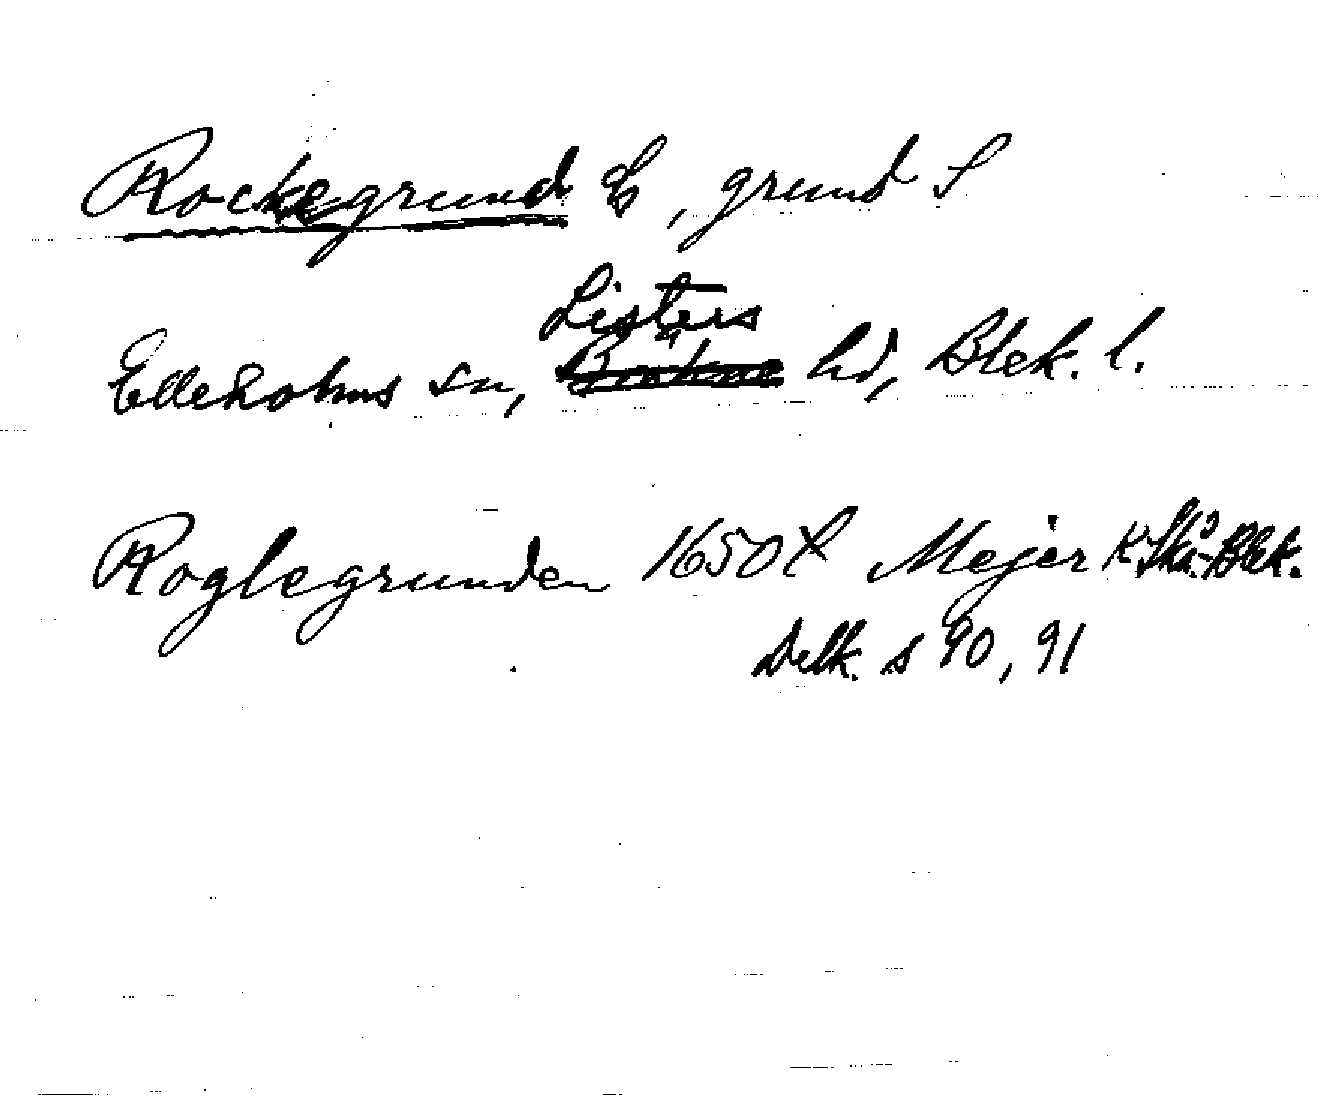 Rockegrund E, grund S
Listers
Elleholms sn, hd, Blek. l.
Roglegrunden 1650 t Mejer K. Skå.-Blek.
Delk. s 90, 91